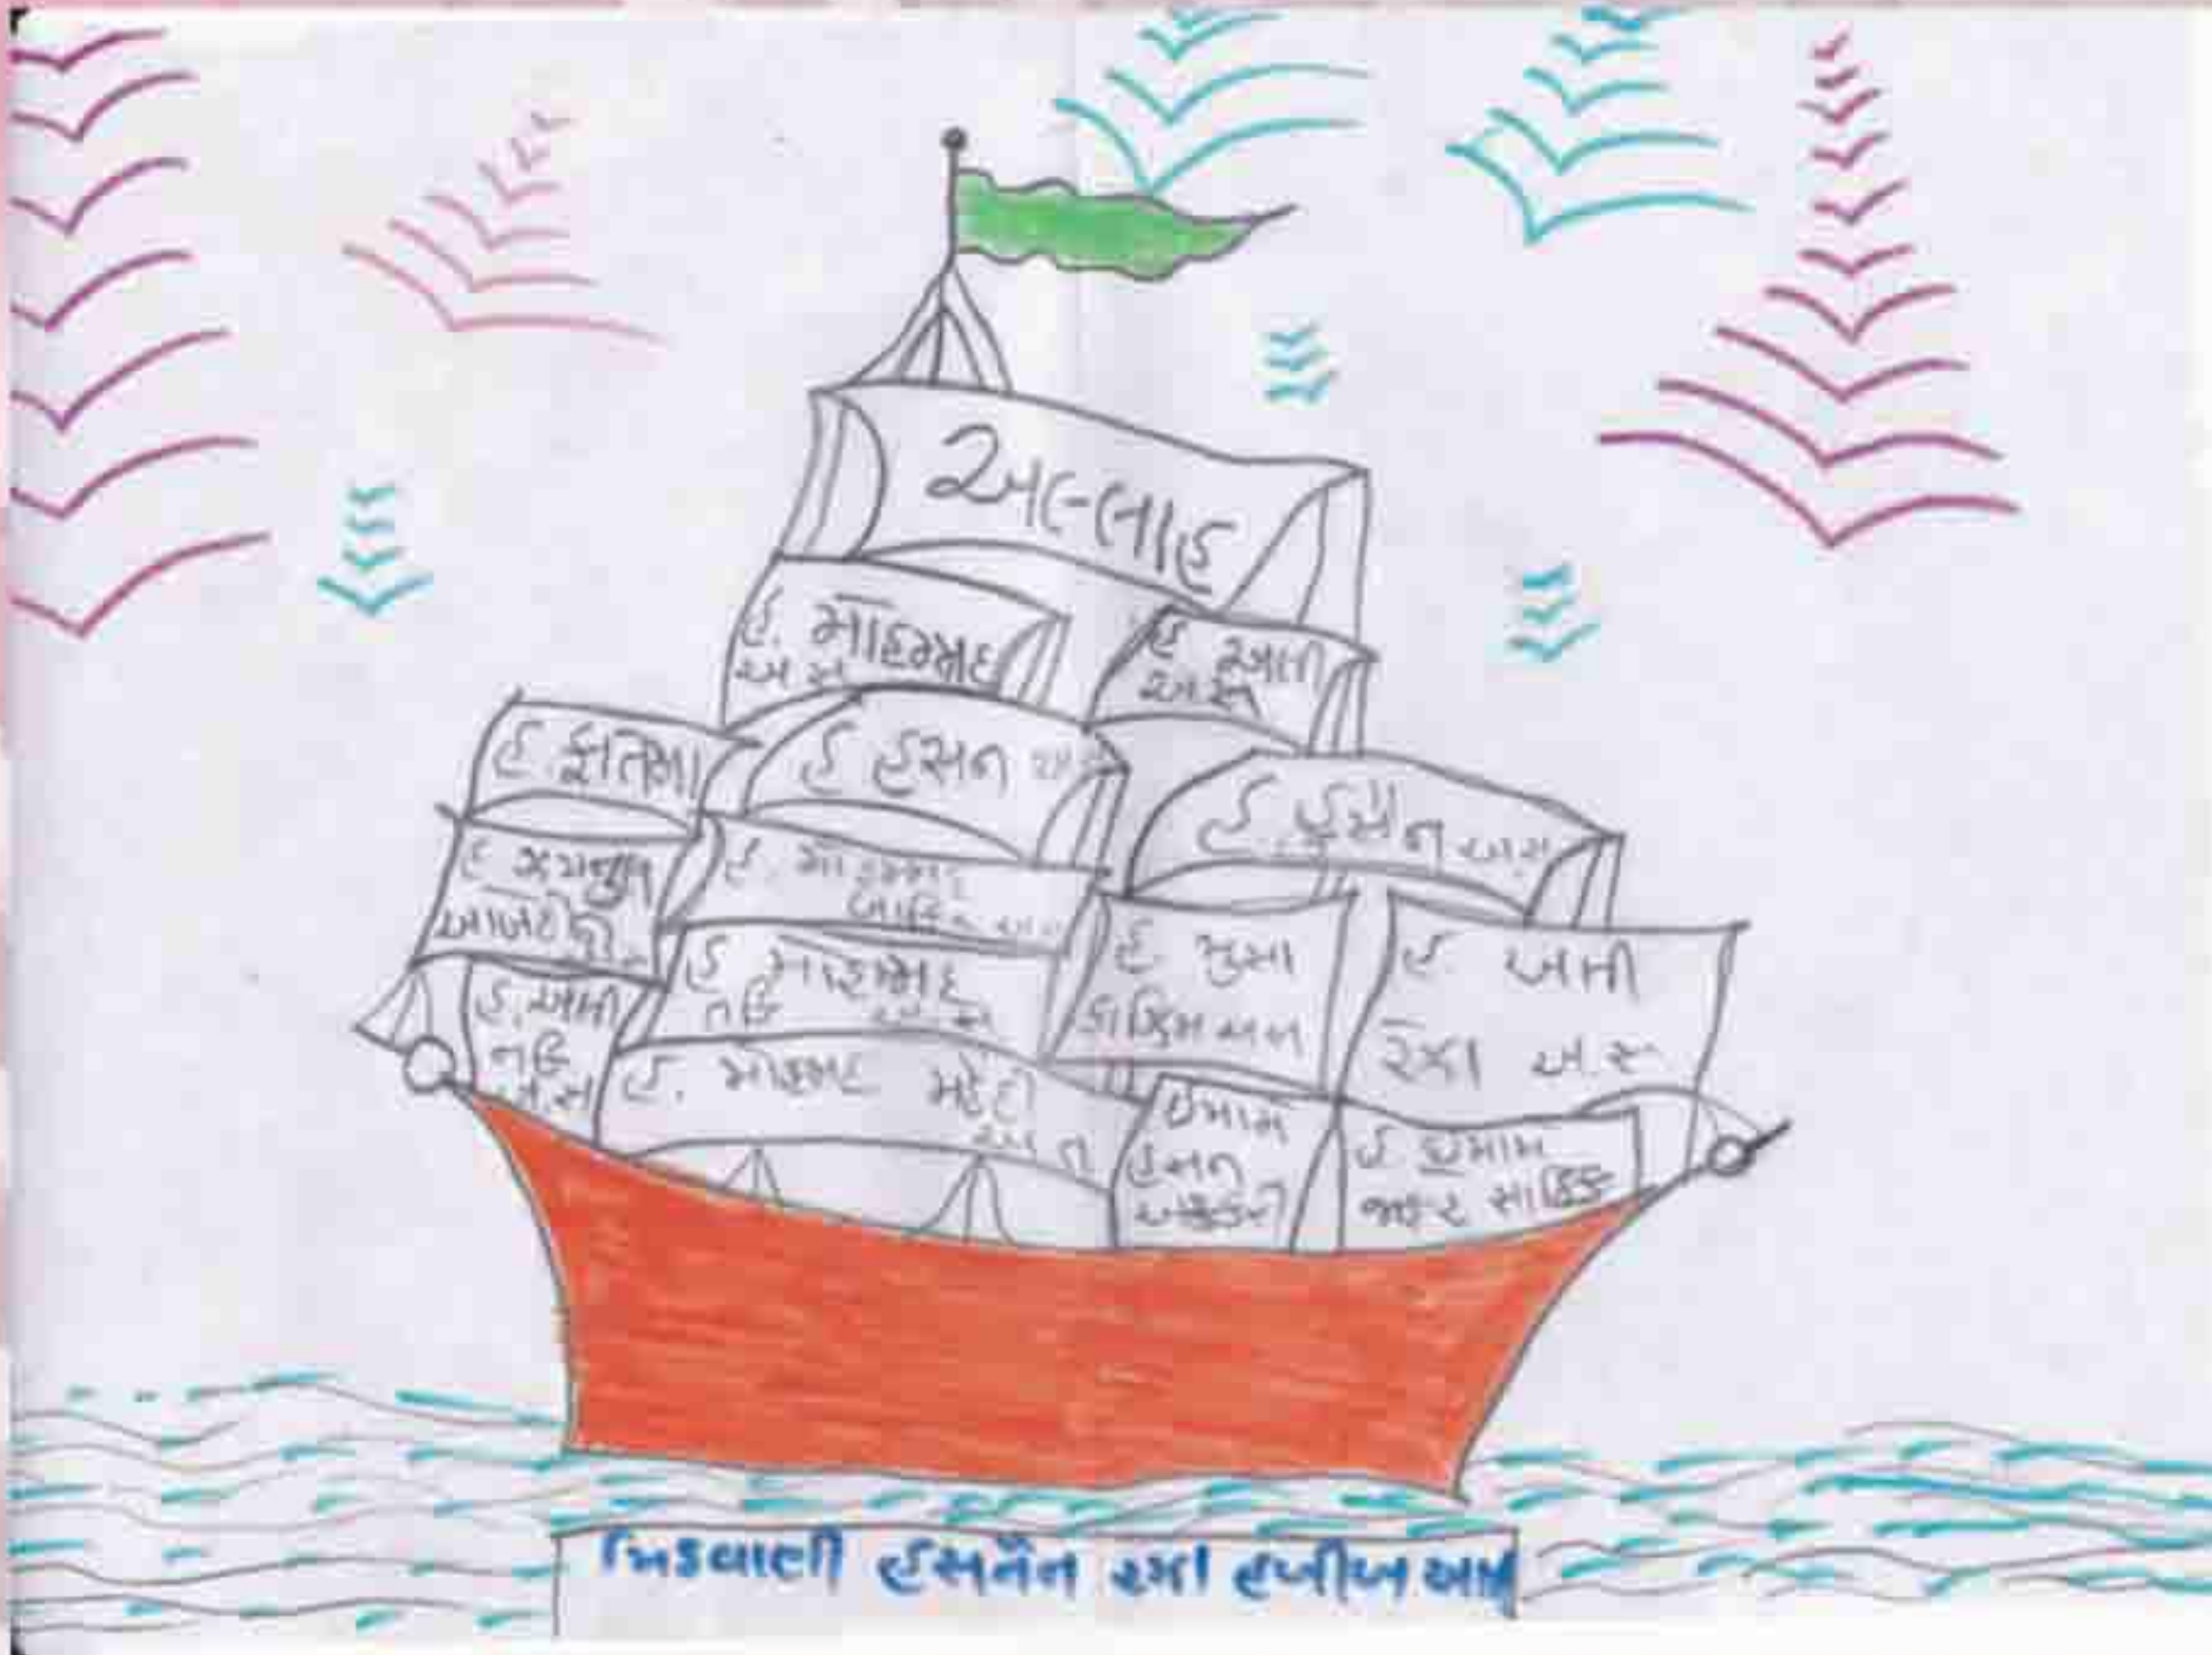 અલ્લાહ
હ. મોહમ્મદ
અ સ
હ અલી
અ.સ
હ. ફાતિમા
હ હસન અ
હ. હુસૈન અ.સ
હ ઝયનુલ
આબેદીન
હ. મોહમ્મદ
બાકિર અ.સ
હ મોહમ્મદ
તકી અ.સ
હ. મુસા
કાઝિમ અ.સ
હ. અલી
રઝા અ.સ
હ. અલી
નકી
અ.સ
હ. મોહમ્મદ મહેદી
અ સ
ઇમામ
હસન
અસ્કરી
હ ઇમામ
જાફર સાદિક
મિઠવાણી હસનૈન રઝા હબીબ ભાઈ